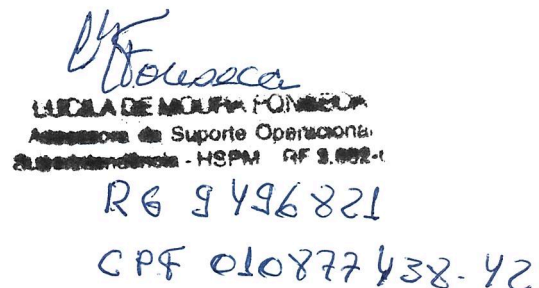 Fonseca
LUCILA DE MOURA FONSECA
Assessora de Suporte Operacional
Superintendência - HSPM RF
RG 9496821
CPF 010877438-42